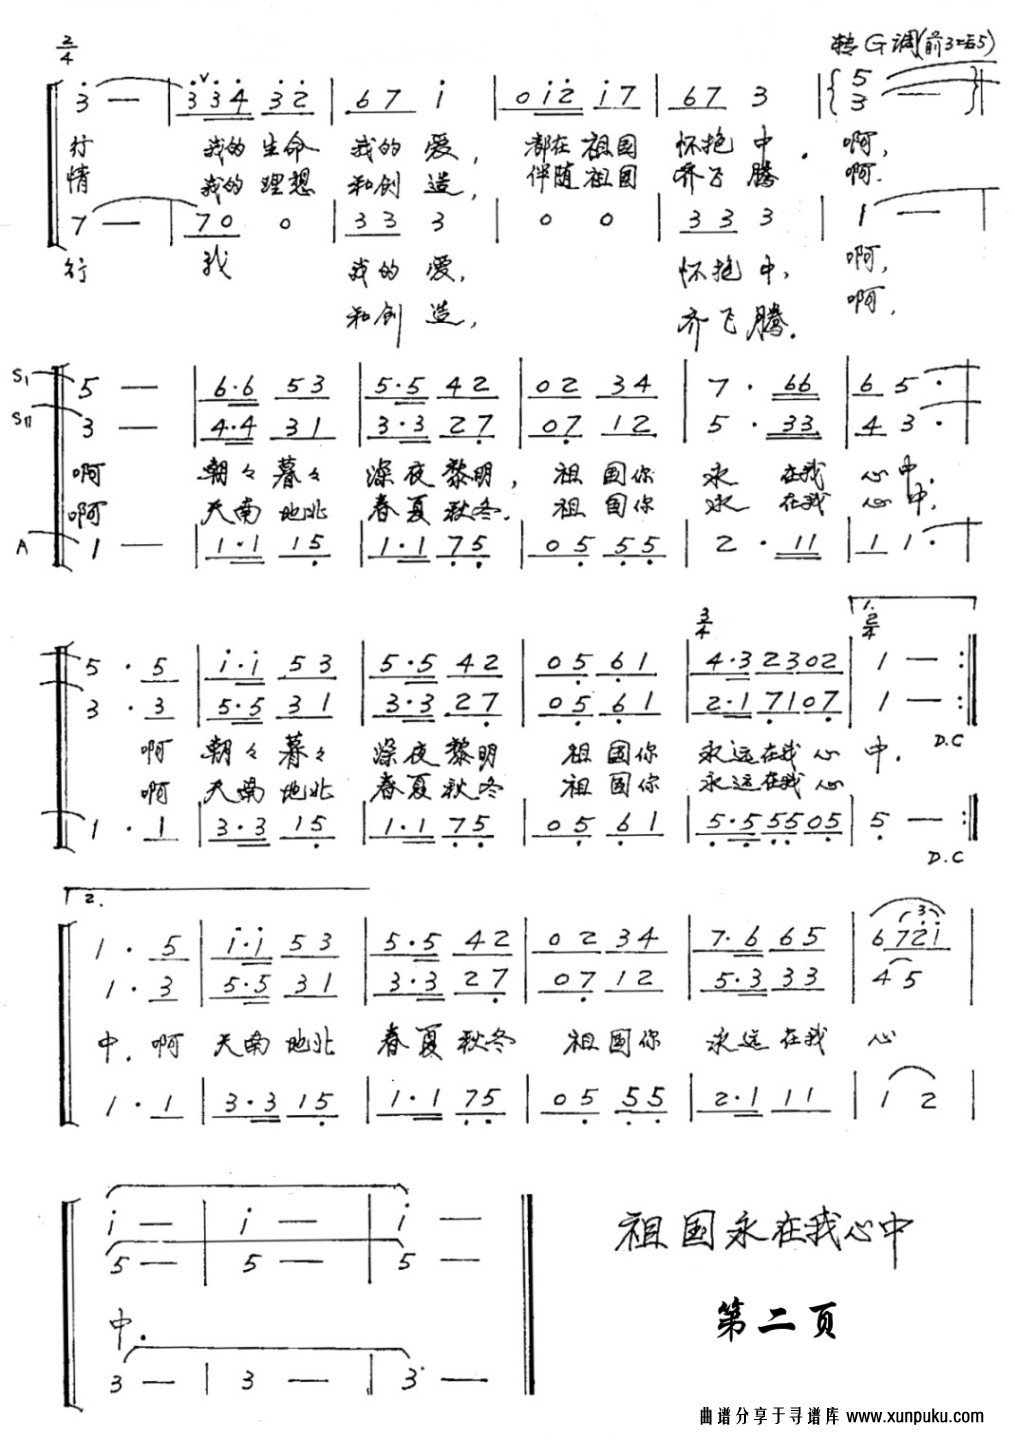 2/4 转G调(前3=后5)
3 — | 3 3 4 3 2 | 6 7 i | 0 i 2 i 7 | 6 7 3 | { 5 3 — }
行 我的生命 我的爱, 都在祖国 怀抱中. 啊,
情 我的理想 和创造, 伴随祖国 齐飞腾 啊.
7 — | 7 0 0 | 3 3 3 | 0 0 | 3 3 3 | 1 — |
行 我 我的爱, 怀抱中, 啊,
和创造, 齐飞腾. 啊,
SI 5 — | 6·6 5 3 | 5·5 4 2 | 0 2 3 4 | 7· 6 6 | 6 5·
SII 3 — | 4·4 3 1 | 3·3 2 7 | 0 7 1 2 | 5· 3 3 | 4 3·
啊 朝々暮々 深夜黎明, 祖国你 永在我 心中.
啊 天南地北 春夏秋冬. 祖国你 永在我 心中,
A 1 — | 1·1 1 5 | 1·1 7 5 | 0 5 5 5 | 2· 1 1 | 1 1·
3/4 1. 2/4
5· 5 | i·i 5 3 | 5·5 4 2 | 0 5 6 1 | 4·3 2 3 0 2 | 1 — :|
3· 3 | 5·5 3 1 | 3·3 2 7 | 0 5 6 1 | 2·1 7 1 0 7 | 1 — :|
D.C
啊 朝々暮々 深夜黎明 祖国你 永远在我心 中.
啊 天南地北 春夏秋冬 祖国你 永远在我心
1· 1 | 3·3 1 5 | 1·1 7 5 | 0 5 6 1 | 5·5 5 5 0 5 | 5 — :|
D.C
2.
1· 5 | i·i 5 3 | 5·5 4 2 | 0 2 3 4 | 7·6 6 5 | 6 7 2 i (3)
1· 3 | 5·5 3 1 | 3·3 2 7 | 0 7 1 2 | 5·3 3 3 | 4 5
中. 啊 天南地北 春夏秋冬 祖国你 永远在我 心
1· 1 | 3·3 1 5 | 1·1 7 5 | 0 5 5 5 | 2·1 1 1 | 1 2 |
i — | i — | i —
5 — | 5 — | 5 —
中.
3 — | 3 — | 3 —
祖国永在我心中
第二页
曲谱分享于寻谱库 www.xunpuku.com